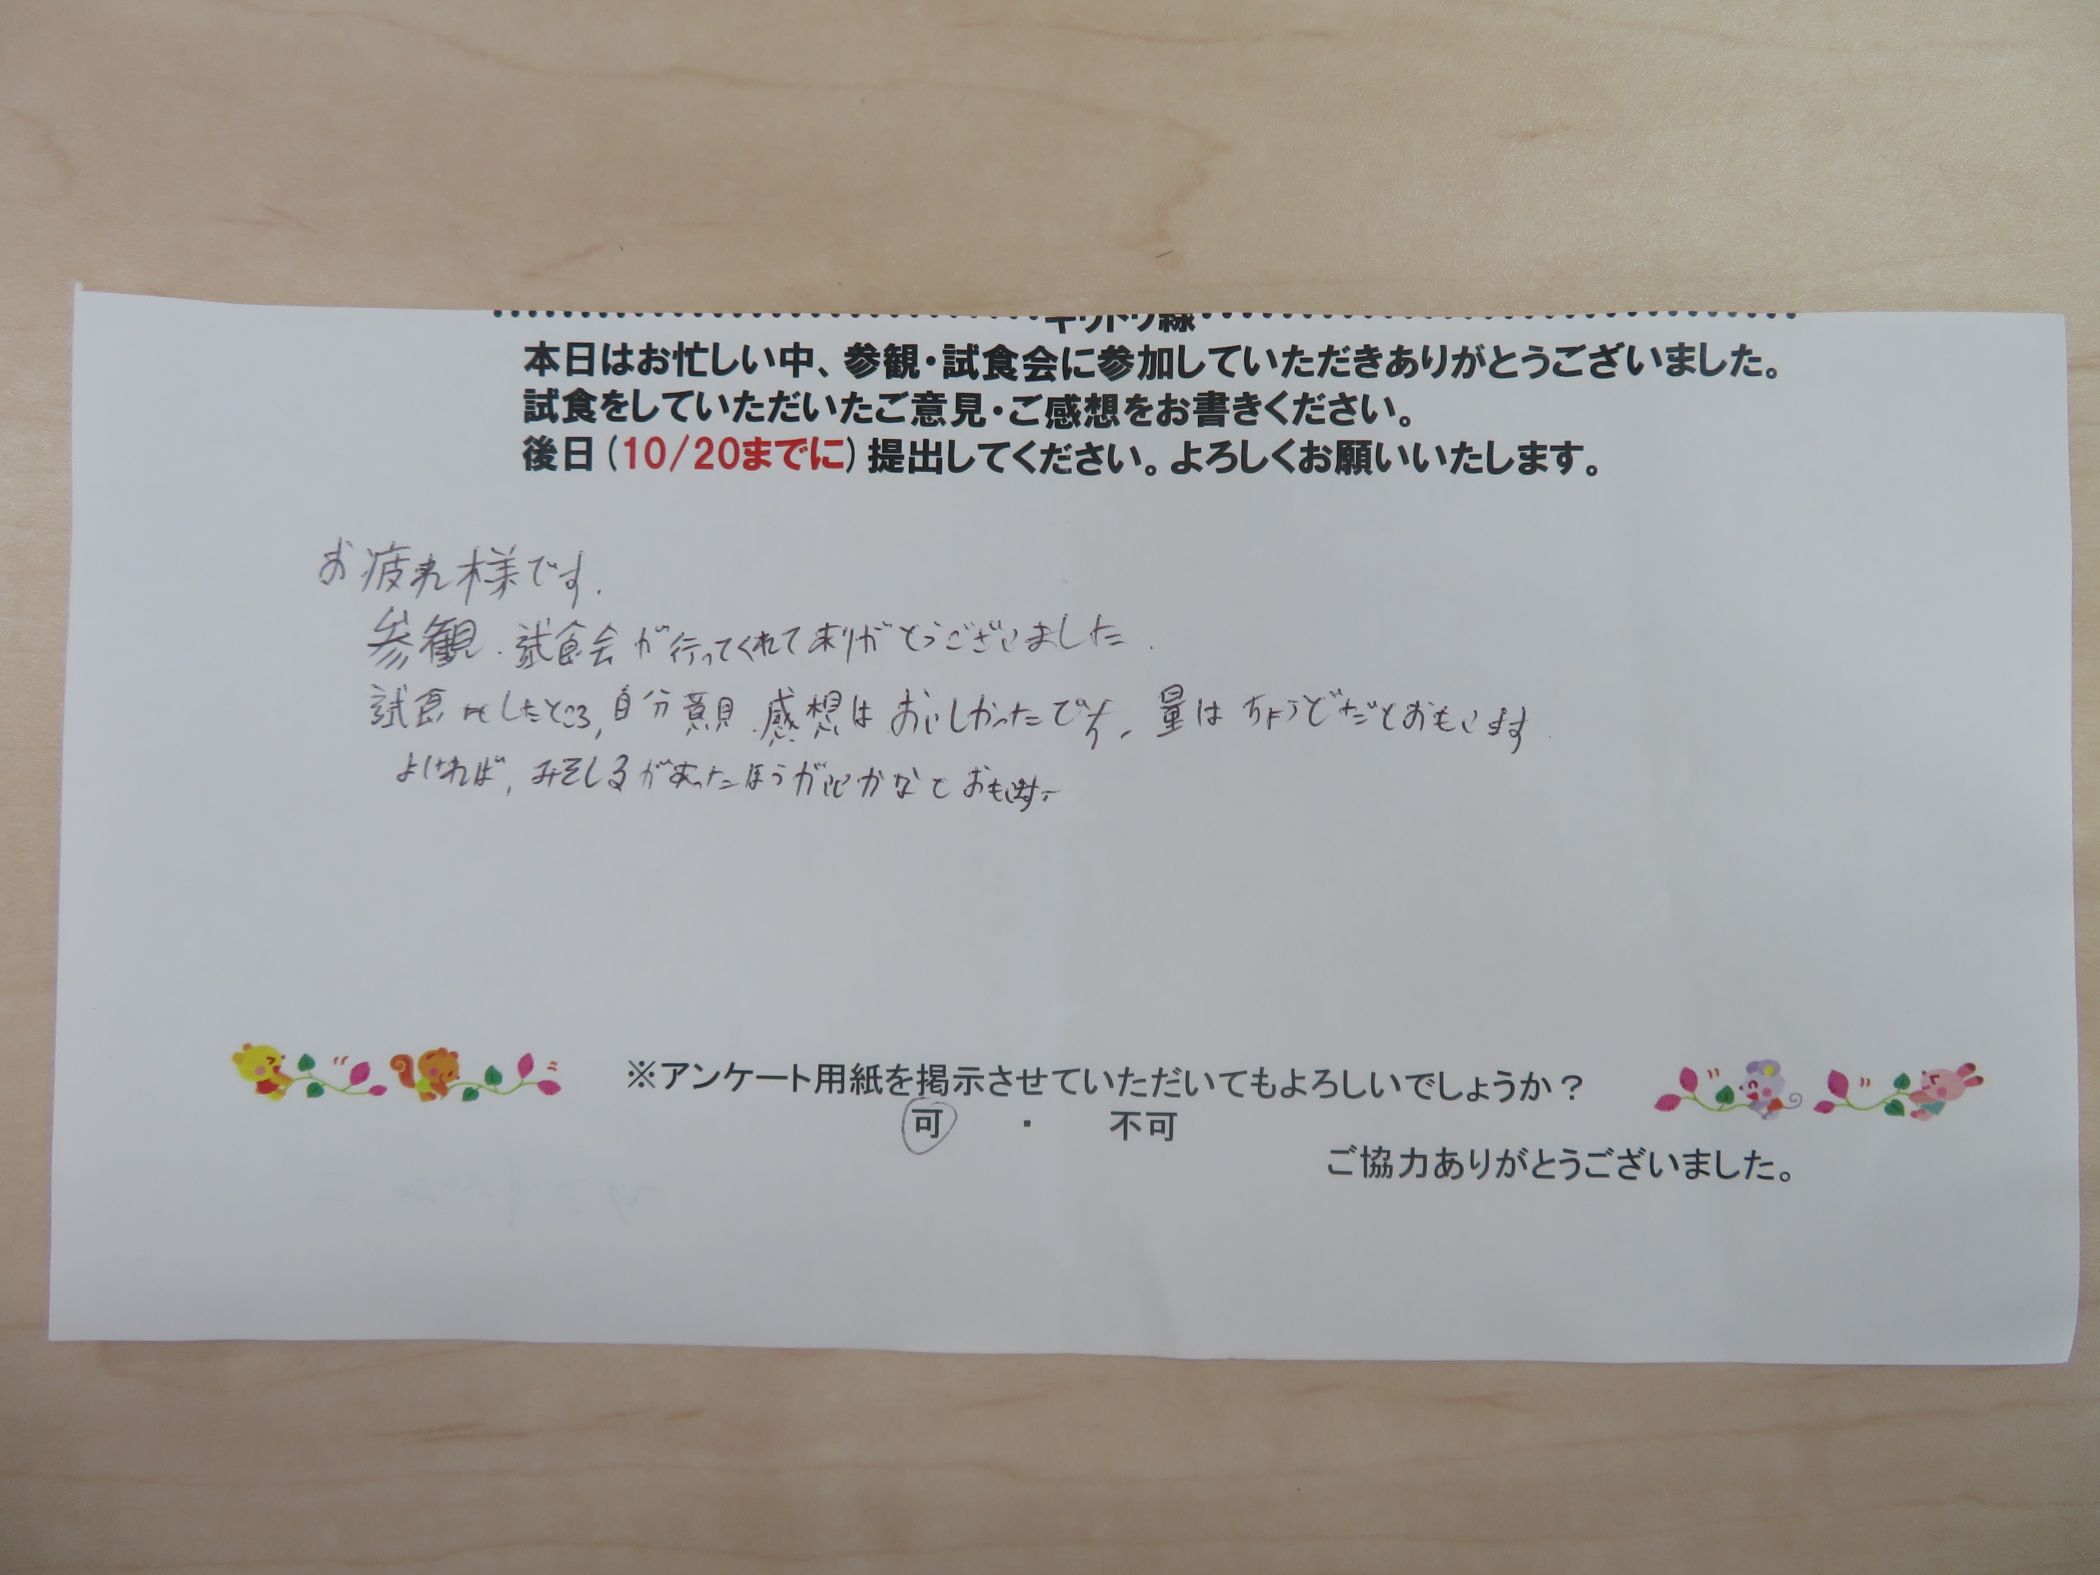 キリトリ線
本日はお忙しい中、参観・試食会に参加していただきありがとうございました。
試食をしていただいたご意見・ご感想をお書きください。
後日(10/20までに)提出してください。よろしくお願いいたします。
お疲れ様です.
参観.試食会が行ってくれてありがとうございました.
試食をしたところ,自分意見.感想はおいしかったです,量はちょうどだとおもいます.
よければ,みそしるがあったほうがいいかなとおもいます.
※アンケート用紙を掲示させていただいてもよろしいでしょうか？
可 ・ 不可
ご協力ありがとうございました。